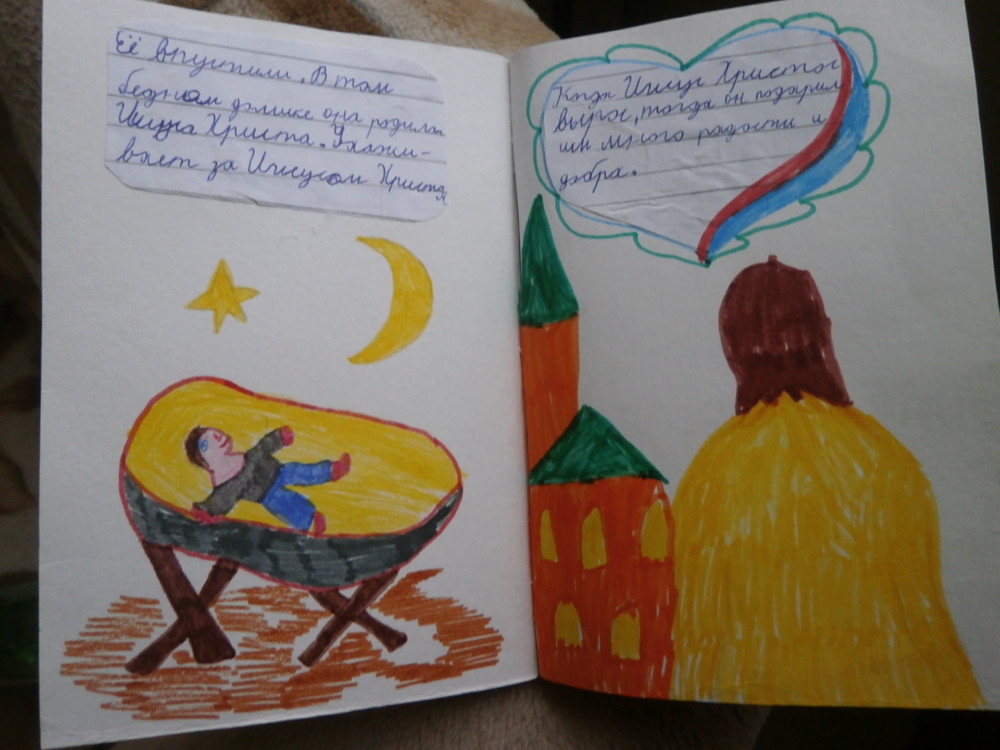 Её впустили. В том
бедном домике она родила
Иисуса Христа. Ухажи-
вает за Иисусом Христом
Когда Иисус Христос
вырос, тогда он подарил
им много радости и
добра.